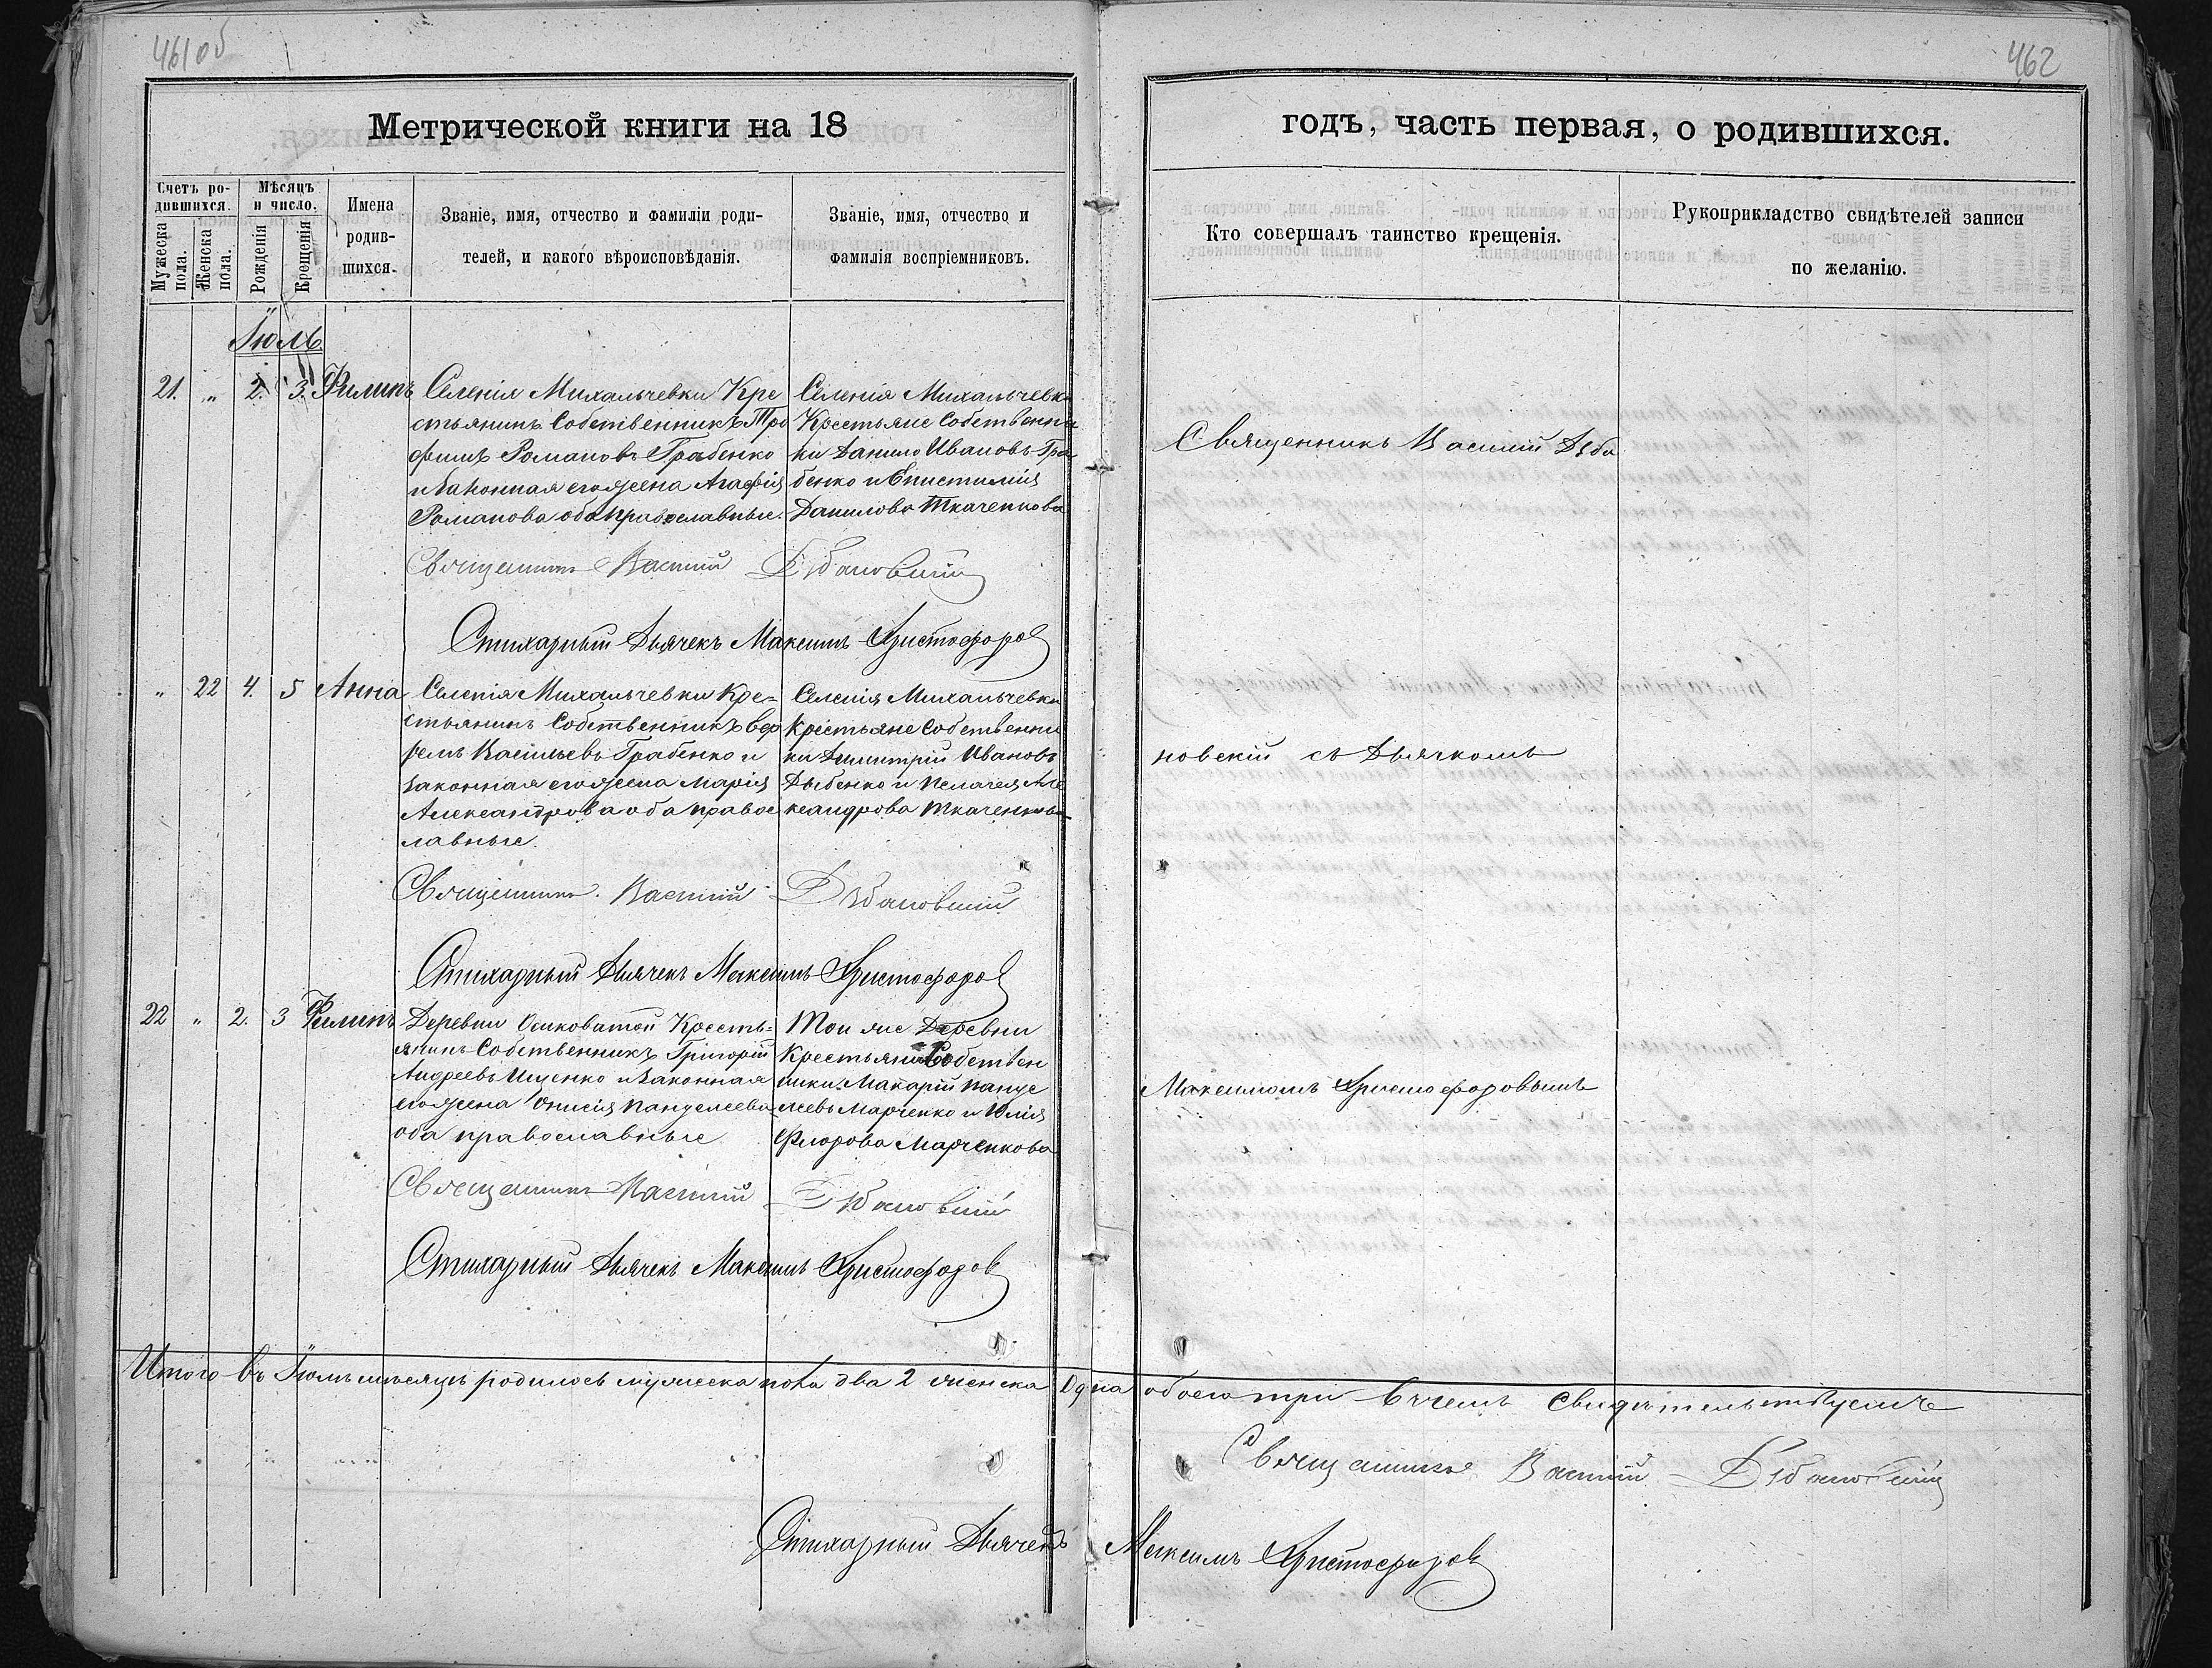 461 об
462
Метрической книги на 18
годъ, часть первая, о родившихся.
Счетъ ро-
дившихся.
Мужеска пола.
Женска пола.
Мѣсяцъ
и число.
Рожденія
Крещенія
Имена
родив-
шихся.
Званіе, имя, отчество и фамиліи роди-
телей, и какого вѣроисповѣданія.
Званіе, имя, отчество и
фамилія воспріемниковъ.
Кто совершалъ таинство крещенія.
Рукоприкладство свидѣтелей записи
по желанію.
Іюль
21. " 2. 3. Филипъ
Селенія Михальчевки Кре
стьянинъ Собственникъ Тро
фимъ Романовъ Грабенко
и Законная его жена Агафія
Романова оба православные.
Селенія Михальчевки
Крестьяне Собственни
ки Данило Ивановъ Гра
бенко и Епистимія
Данилова Ткаченкова
Священникъ Василій Дѣбановскій
Стихарный Дьячекъ Максимъ Христофоров
" 22 4. 5 Анна
Селенія Михальчевки Кре-
стьянинъ Собственникъ
Васильевъ Грабенко и
законная его жена Марія
Александрова оба правос
лавные.
Селенія Михальчевки
Крестьяне Собственни
ки Димитрій Ивановъ
Дыбенко и Пелагея Але
ксандрова Ткаченкова
Священникъ Василій Дѣбановскій
Стихарный Дьячекъ Максимъ Христофоров
22 " 2. 3 Филипъ
Деревни Осиковатой Кресть-
янинъ Собственникъ Григорій
Андреевъ Ищенко и Законная
его жена Онисія Пантелеева
оба православные
Той же Деревни
Крестьяни Собствен
ники Макарій Панте
леевъ Марченко и Юлія
Флорова Марченкова
Священникъ Василій Дѣбановскій
Стихарный Дьячекъ Максимъ Христофоров
Священникъ Василій Дѣба
новскій съ Дьячкомъ
Максимомъ Христофоровымъ
Итого въ Іюль мѣсяцъ родилось мужеска пола два 2 женска Одна обоего три въ чемъ Свидѣтельствуемъ
Священникъ Василій Дѣбановскій
Стихарный Дьячекъ Максимъ Христофоров